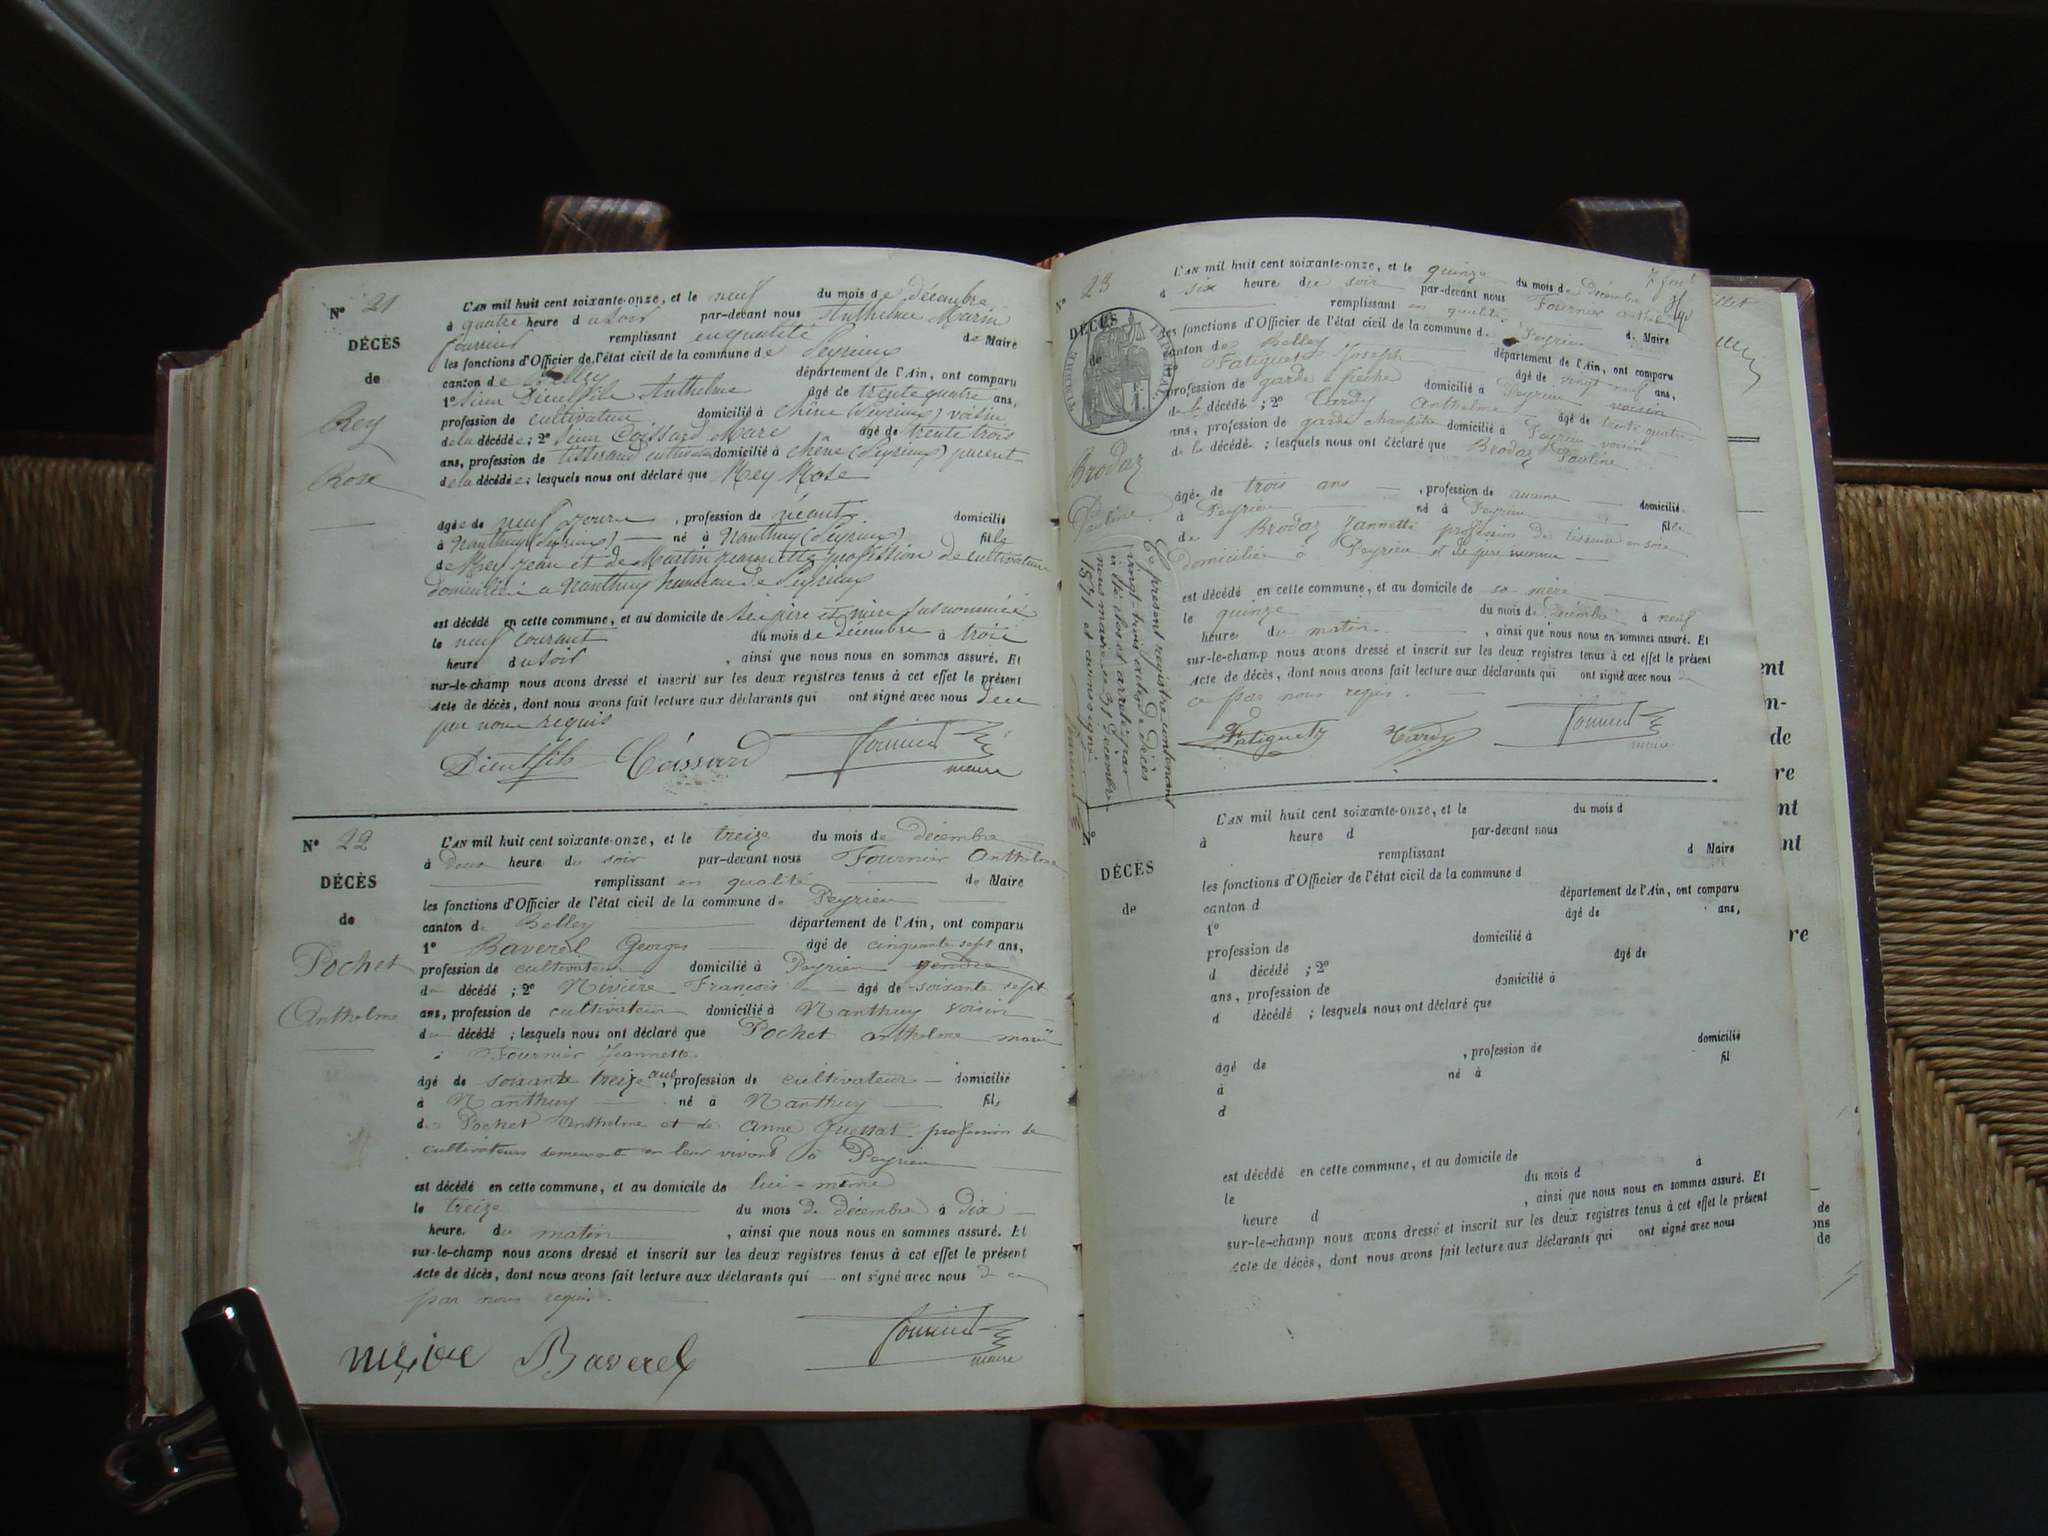 N° 21
DÉCÈS
de
Rey
Rose
L'AN mil huit cent soixante-onze, et le neuf du mois de décembre
à quatre heure du soir par-devant nous Anthelme Marin
Fournier remplissant en qualité de Maire
les fonctions d'Officier de l'état civil de la commune de Peyrieux
canton de Belley département de l'Ain, ont comparu
1° Sieur Dieutfils Anthelme âgé de trente quatre ans,
profession de cultivateur domicilié à Chêne (Peyrieux) voisin
de la décédée ; 2° Sieur Coissard Marc âgé de trente trois
ans, profession de tisserand cultivateur domicilié à Chêne (Peyrieux) parent
de la décédée ; lesquels nous ont déclaré que Rey Rose
âgée de neuf jours , profession de néant domicilié
à Nanthuy (Peyrieux) né à Nanthuy (Peyrieux) fille
de Rey Jean et de Martin Jeannette profession de cultivateur
domiciliés à Nanthuy hameau de Peyrieux
est décédé en cette commune, et au domicile de ses père et mère susnommés
le neuf courant du mois de décembre à trois
heure du soir , ainsi que nous nous en sommes assuré. Et
sur-le-champ nous avons dressé et inscrit sur les deux registres tenus à cet effet le présent
Acte de décès, dont nous avons fait lecture aux déclarants qui ont signé avec nous de ce
par nous requis
Dieutfils Coissard Fournier
maire
N° 22
DÉCÈS
de
Pochet
Anthelme
L'AN mil huit cent soixante-onze, et le treize du mois de décembre
à deux heure du soir par-devant nous Fournier Anthelme
remplissant en qualité de Maire
les fonctions d'Officier de l'état civil de la commune de Peyrieu
canton de Belley département de l'Ain, ont comparu
1° Baverel Georges âgé de cinquante sept ans,
profession de cultivateur domicilié à Peyrieu gendre
du décédé ; 2° Nivière François âgé de soixante sept
ans, profession de cultivateur domicilié à Nanthuy voisin
du décédé ; lesquels nous ont déclaré que Pochet anthelme marié
à Fournier Jeannette
âgé de soixante treize ans, profession de cultivateur domicilié
à Nanthuy né à Nanthuy fils
de Pochet Anthelme et de Anne profession de
cultivateurs demeurant en leur vivant à Peyrieu
est décédé en cette commune, et au domicile de lui-même
le treize du mois de décembre à dix
heure du matin , ainsi que nous nous en sommes assuré. Et
sur-le-champ nous avons dressé et inscrit sur les deux registres tenus à cet effet le présent
Acte de décès, dont nous avons fait lecture aux déclarants qui ont signé avec nous de ce
par nous requis.
Baverel Fournier
maire
N° 23
DÉCÈS
de
TIMBRE IMPÉRIAL
Brodaz
Pauline
L'AN mil huit cent soixante-onze, et le quinze du mois de décembre
à six heure du soir par-devant nous Fournier Anthelme
remplissant en qualité de Maire
les fonctions d'Officier de l'état civil de la commune de Peyrieu
canton de Belley département de l'Ain, ont comparu
1° Fatiguet Joseph âgé de vingt neuf ans,
profession de garde à pêche domicilié à Peyrieu voisin
de la décédé ; 2° Tardy Anthelme âgé de trente quatre
ans, profession de garde champêtre domicilié à Peyrieu voisin
de la décédé ; lesquels nous ont déclaré que Brodaz Pauline
âgé de trois ans , profession de aucune domicilié
à Peyrieu né à Peyrieu fille
de Brodaz Jannette profession de tisseuse en soie
domiciliée à Peyrieu et de père inconnu
est décédé en cette commune, et au domicile de sa mère
le quinze du mois de décembre à neuf
heure du matin , ainsi que nous nous en sommes assuré. Et
sur-le-champ nous avons dressé et inscrit sur les deux registres tenus à cet effet le présent
Acte de décès, dont nous avons fait lecture aux déclarants qui ont signé avec nous de
ce par nous requis.
Fatiguet Tardy Fournier
maire
Ce présent registre contenant
vingt-trois actes de décès
a été clos et arrêté par
nous maire le 31 Décembre
1871
N°
DÉCÈS
de
L'AN mil huit cent soixante-onze, et le du mois d
à heure d par-devant nous
remplissant d Maire
les fonctions d'Officier de l'état civil de la commune d
canton d département de l'Ain, ont comparu
1° âgé de ans,
profession de domicilié à
d décédé ; 2° âgé de
ans, profession de domicilié à
d décédé ; lesquels nous ont déclaré que
âgé de , profession de domicilié
à né à fil
d
est décédé en cette commune, et au domicile de
le du mois d à
heure d , ainsi que nous nous en sommes assuré. Et
sur-le-champ nous avons dressé et inscrit sur les deux registres tenus à cet effet le présent
Acte de décès, dont nous avons fait lecture aux déclarants qui ont signé avec nous